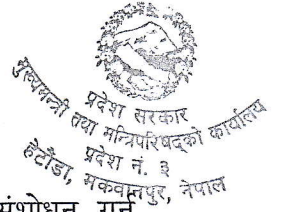 प्रदेश सरकार
मुख्यमन्त्री तथा मन्त्रिपरिषद्को कार्यालय
प्रदेश नं. ३
हेटौंडा, मकवानपुर, नेपाल
संशोधन गर्न